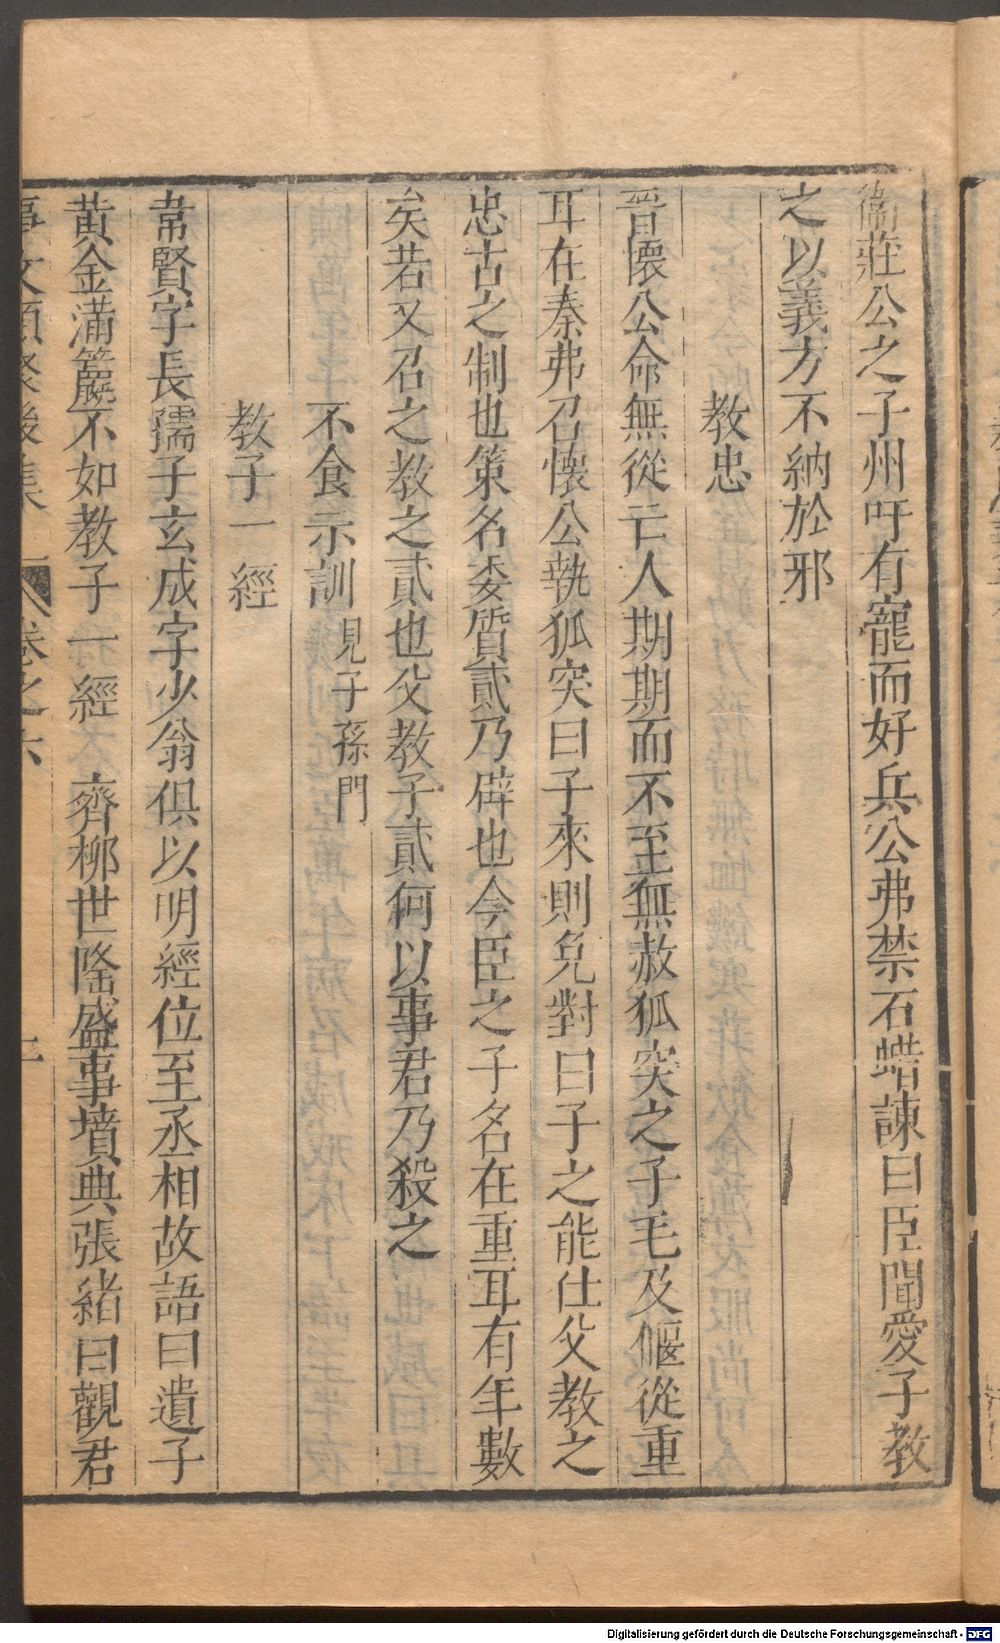 衞莊公之子州吁有寵而好兵公弗禁石蜡諫曰臣聞愛子教
之以義方不納於邪
教忠
晉懷公命無從亡人期期而不至無赦狐突之子毛及偃從重
耳在秦弗召懷公執狐突曰子來則免對曰子之能仕父教之
忠古之制也策名委質貳乃辟也今臣之子名在重耳有年數
矣若又召之教之貳也父教子貳何以事君乃殺之
不食示訓 見子孫門
教子一經
韋賢字長孺子玄成字少翁俱以明經位至丞相故語曰遺子
黃金滿籯不如教子一經 齊柳世隆盛事墳典張緒曰觀君
事文類聚後集 卷之六
Digitalisierung gefördert durch die Deutsche Forschungsgemeinschaft - DFG